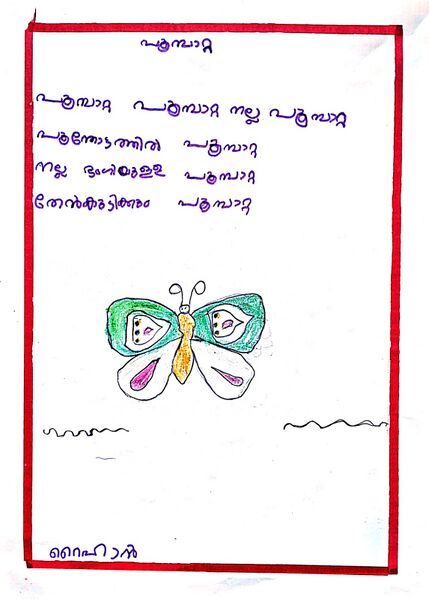 പൂമ്പാറ്റ
പൂമ്പാറ്റ പൂമ്പാറ്റ നല്ല പൂമ്പാറ്റ
പൂന്തോട്ടത്തിൽ പൂമ്പാറ്റ
നല്ല ഭംഗിയുള്ള പൂമ്പാറ്റ
തേൻകുടിക്കും പൂമ്പാറ്റ
റൈഹാൻ